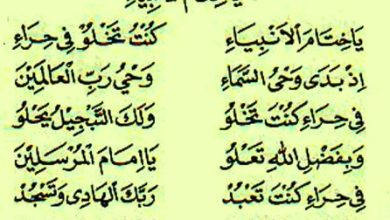 يَاخِتَامَ الْاَنْبِيَاءِ كُنْتَ تَخْلُوْ فِى حِرَاءِ
اِذْ بَدَى وَحْىُ السَّمَاءِ وَحْىُ رَبِّ الْعَالَمِيْنَ
فِى حِرَاءِ كُنْتَ تَخْلُو وَلَكَ التَّبْجِيْلُ يَحْلُو
وَبِفَضْلِ اللهِ تَعْلُو يَااِمَامَ الْمُرْسَلِيْنَ
فِى حِرَاءِ كُنْتَ تَعْبُدْ رَبَّكَ الْهَادِى وَتَسْجُدْ